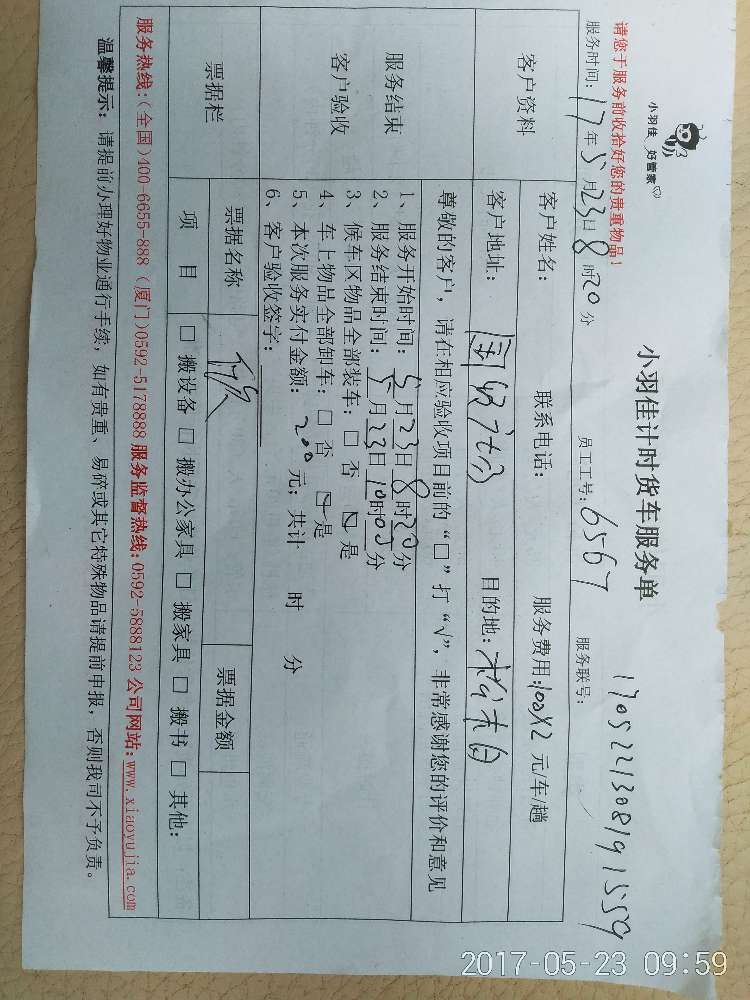 小羽佳 好管家
小羽佳计时货车服务单
请您于服务前收拾好您的贵重物品!
服务时间: 17年5月23日8时20分 员工工号: 6567 服务联号: 1705221308191559
客户资料
客户姓名: 联系电话: 服务费用:100X2 元/车/趟
客户地址: 目的地:
尊敬的客户, 请在相应验收项目前的“□”打“√”, 非常感谢您的评价和意见
服务结束
客户验收
1、服务开始时间: 5月23日8时20分
2、服务结束时间: 5月23日10时05分
3、候车区物品全部装车: □ 否 ☑ 是
4、车上物品全部卸车: □ 否 ☑ 是
5、本次服务实付金额: 200 元; 共计 时 分
6、客户验收签字:
票据栏 票据名称 票据金额
项 目 □ 搬设备 □ 搬办公家具 □ 搬家具 □ 搬书 □ 其他:
服务热线:(全国)400-6655-888 (厦门)0592-5178888 服务监督热线:0592-5888123 公司网站:www.xiaoyujia.com
温馨提示: 请提前办理好物业通行手续, 如有贵重、易碎或其它特殊物品请提前申报, 否则我司不予负责。
2017-05-23 09:59